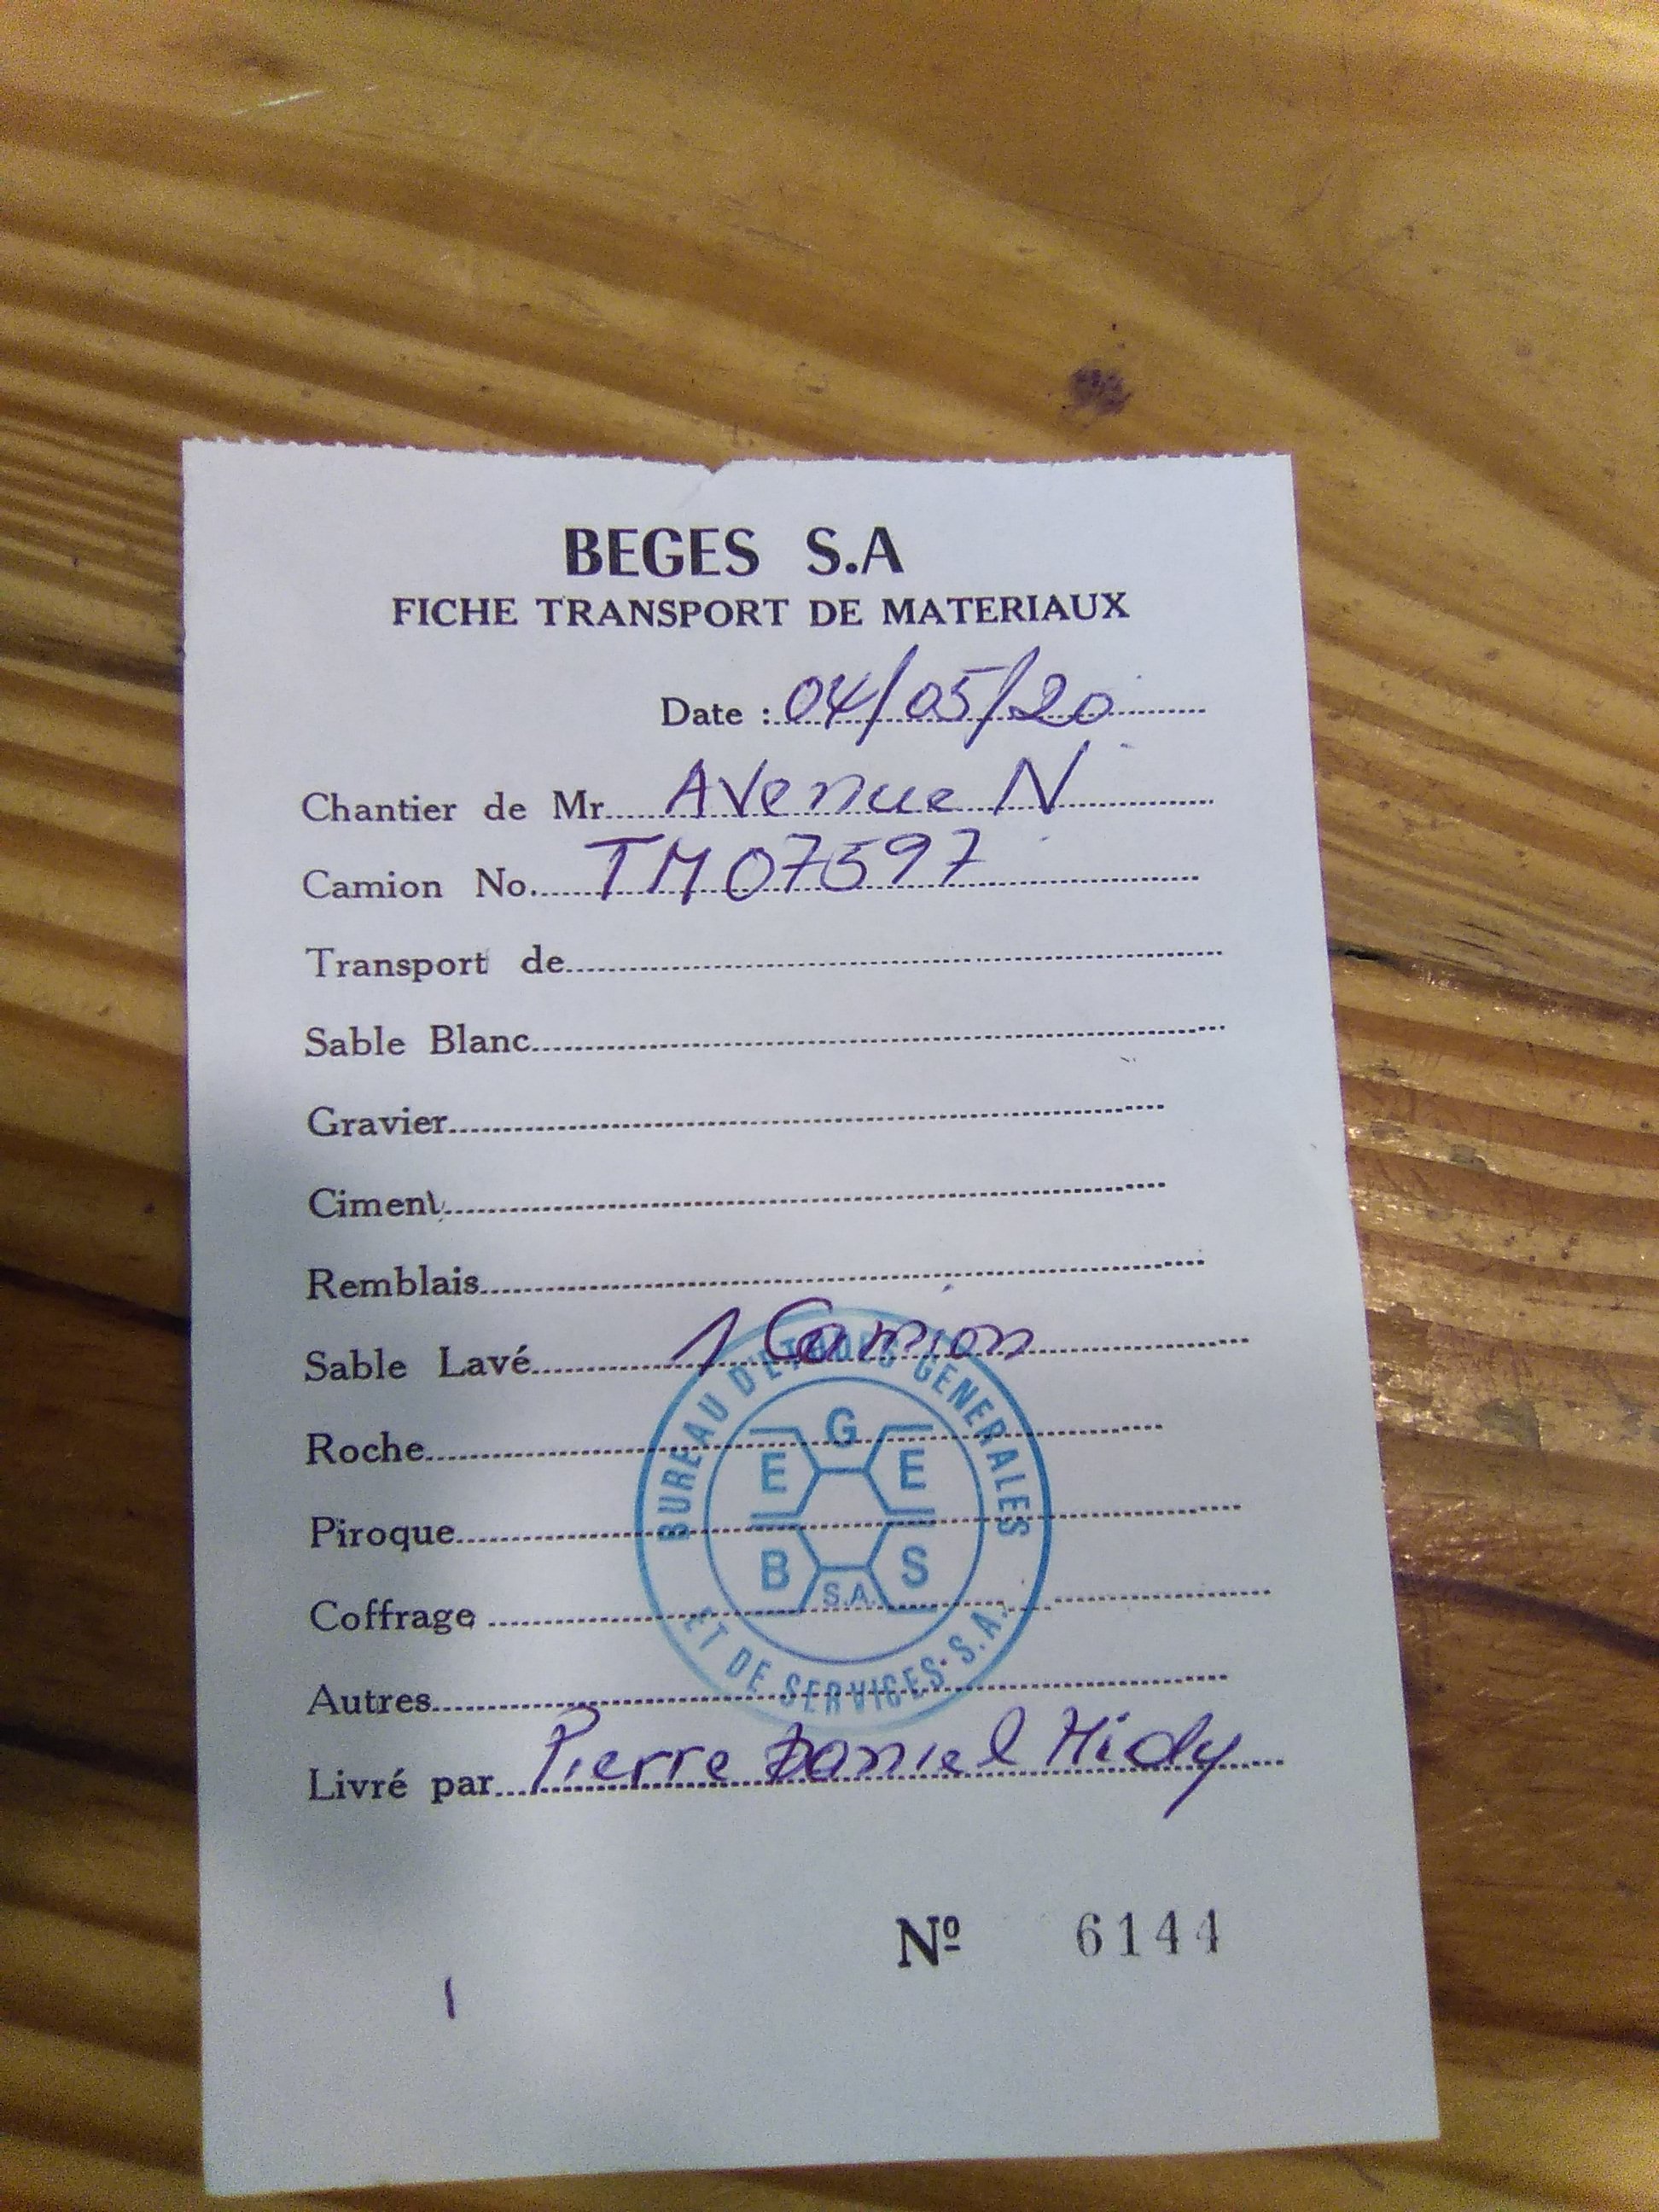 BEGES S.A
FICHE TRANSPORT DE MATERIAUX
Date : 04/05/20
Chantier de Mr. Avenue N
Camion No. TM07597
Transport de
Sable Blanc
Gravier
Ciment
Remblais
Sable Lavé 1 Camion
Roche
Piroque
Coffrage
Autres
Livré par Pierre Daniel Hidy
Nº 6144
BUREAU D'ETUDES GENERALES
ET DE SERVICES S.A.
BEGES
S.A.